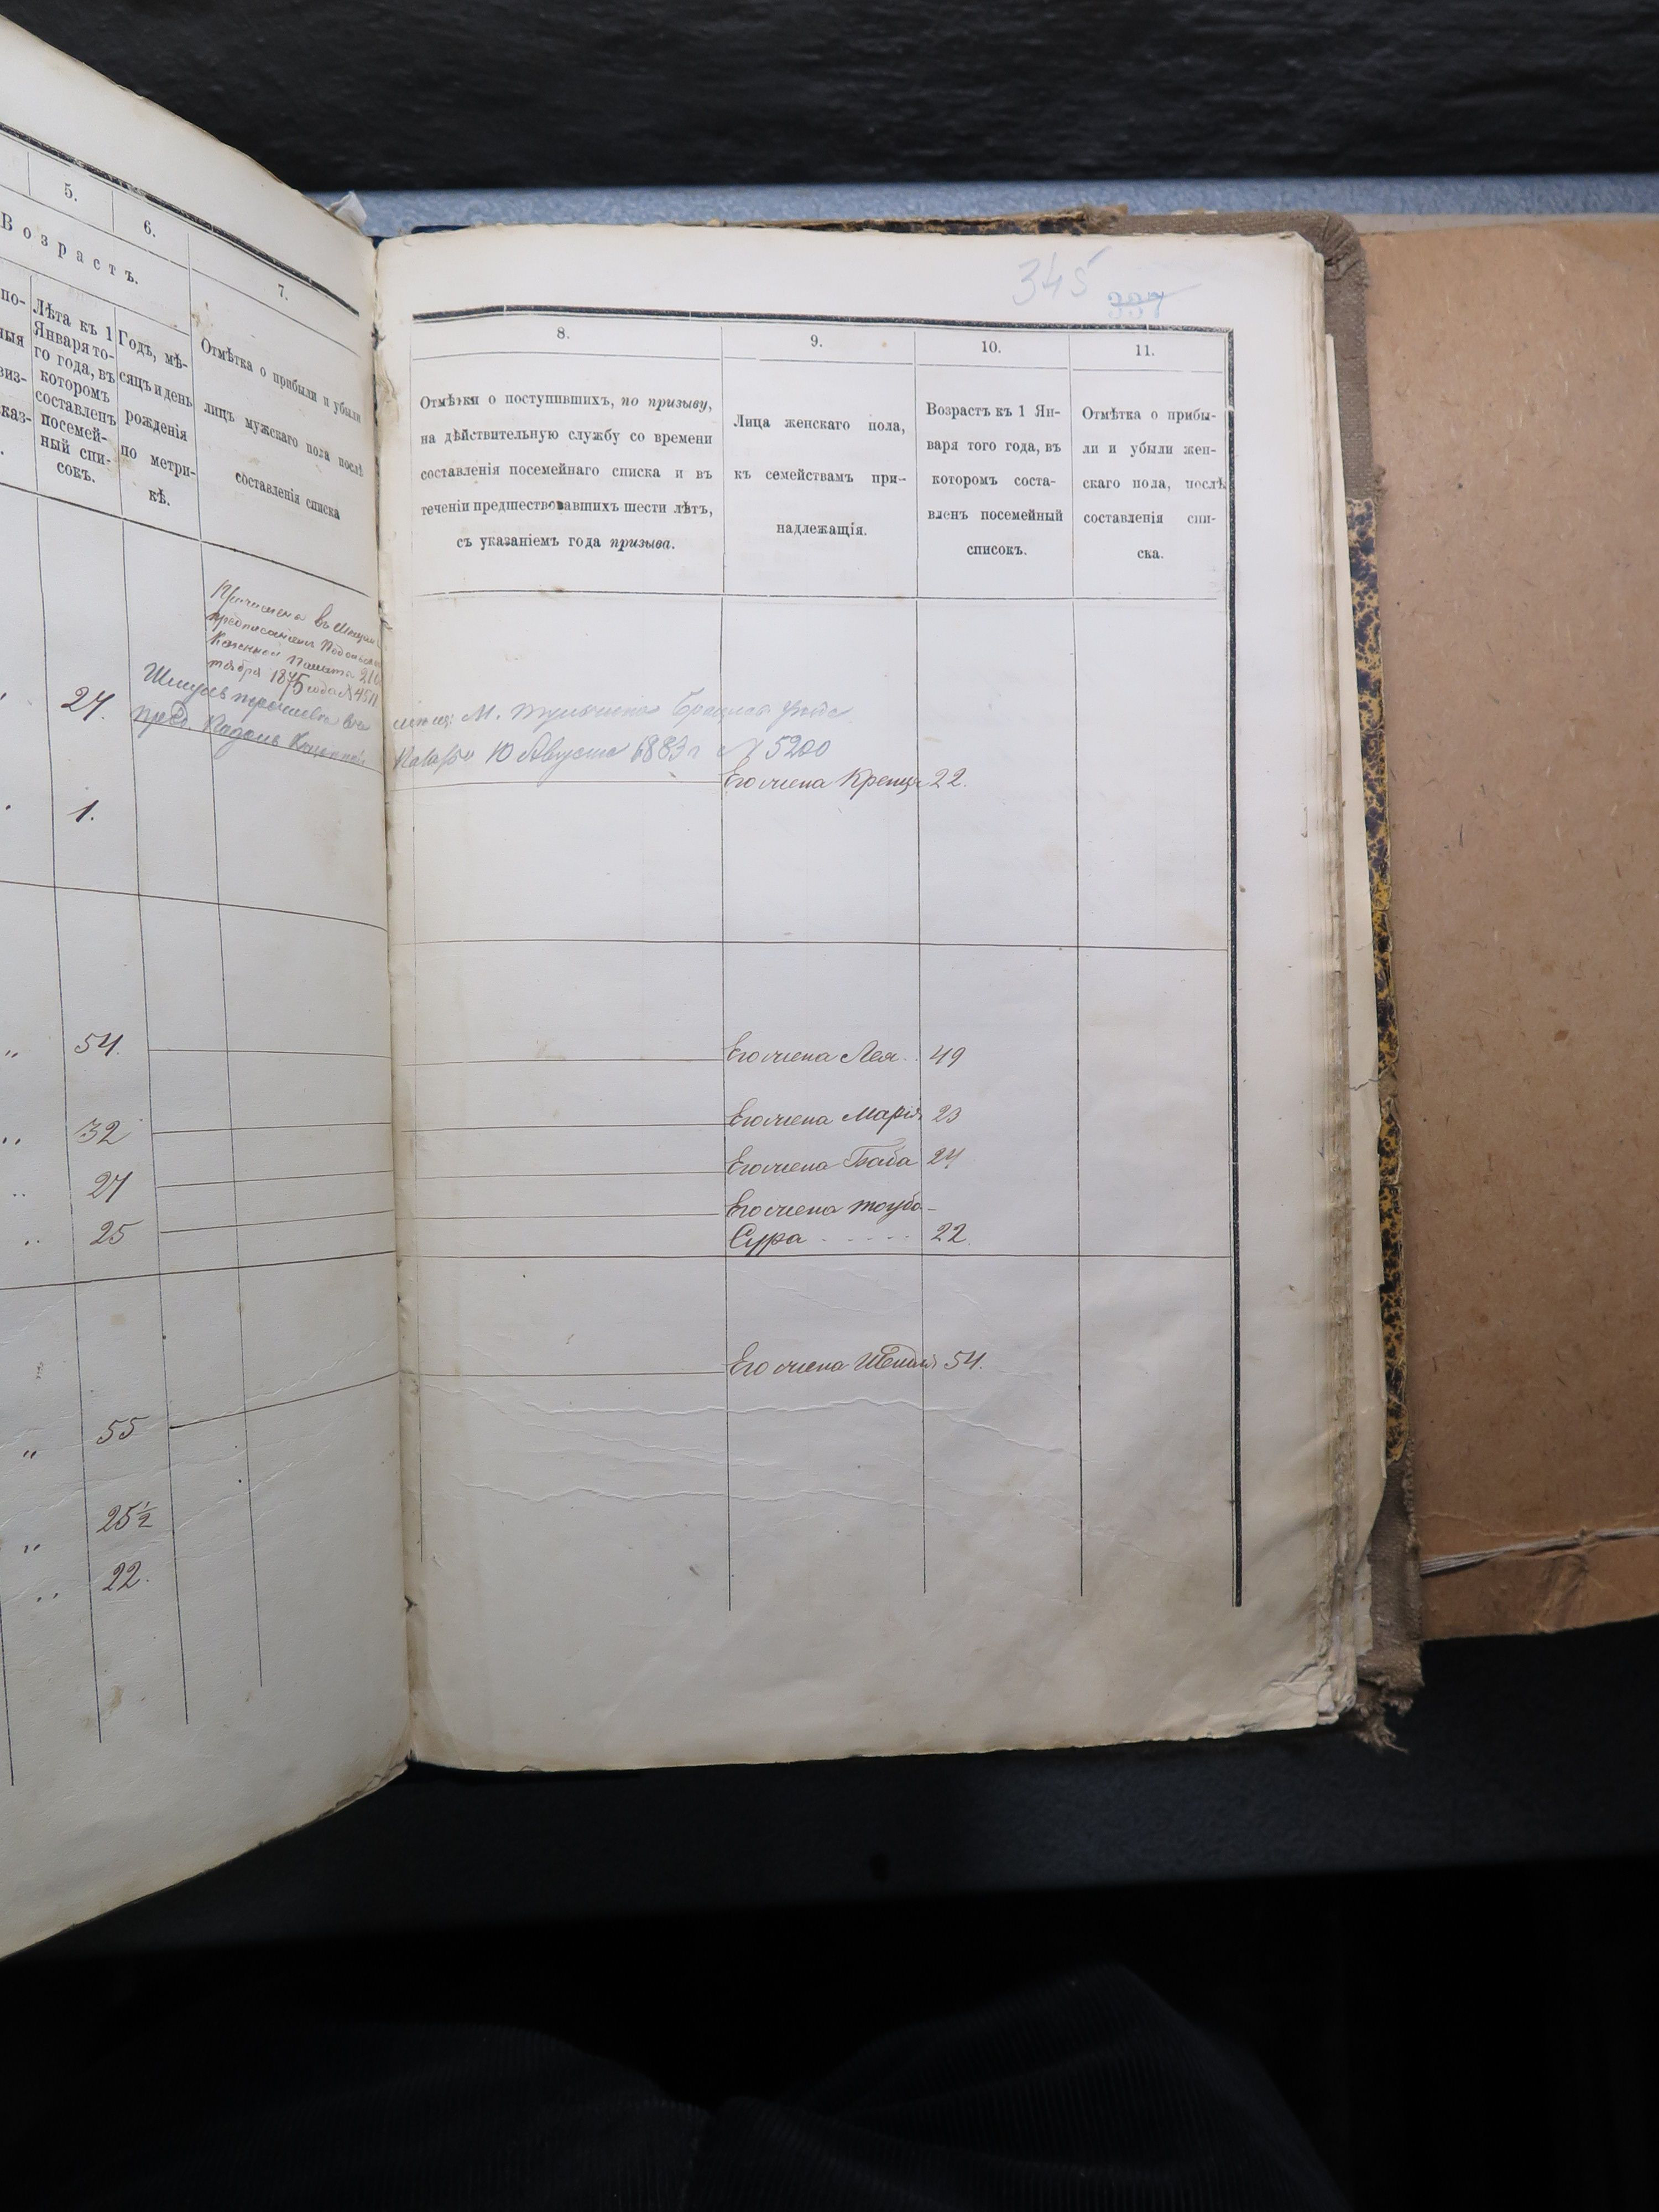 5.
6.
7.
Возрастъ.
по-
ныя
виз-
каз-
Лѣта къ 1
Января то-
го года, въ
которомъ
составленъ
посемей-
ный спи-
сокъ.
Годъ, мѣ-
сяцъ и день
рожденія
по метри-
кѣ.
Отмѣтка о прибыли и убыли
лицъ мужскаго пола послѣ
составленія списка
Казенной Палаты
1875 года № 4511
27.
1.
54.
32
27
25
55
25½
22.
345
337
8.
9.
10.
11.
Отмѣтки о поступившихъ, по призыву,
на дѣйствительную службу со времени
составленія посемейнаго списка и въ
теченіи предшествовавшихъ шести лѣтъ,
съ указаніемъ года призыва.
Лица женскаго пола,
къ семействамъ при-
надлежащія.
Возрастъ къ 1 Ян-
варя того года, въ
которомъ соста-
вленъ посемейный
списокъ.
Отмѣтка о прибы-
ли и убыли жен-
скаго пола, послѣ
составленія спи-
ска.
10 Августа 1883 г № 5200
Его жена Крейця 22.
Его жена Лея 49
Его жена Марія 23
Его жена Баба 24
Его жена Тоуба-
Сура 22.
Его жена 54.